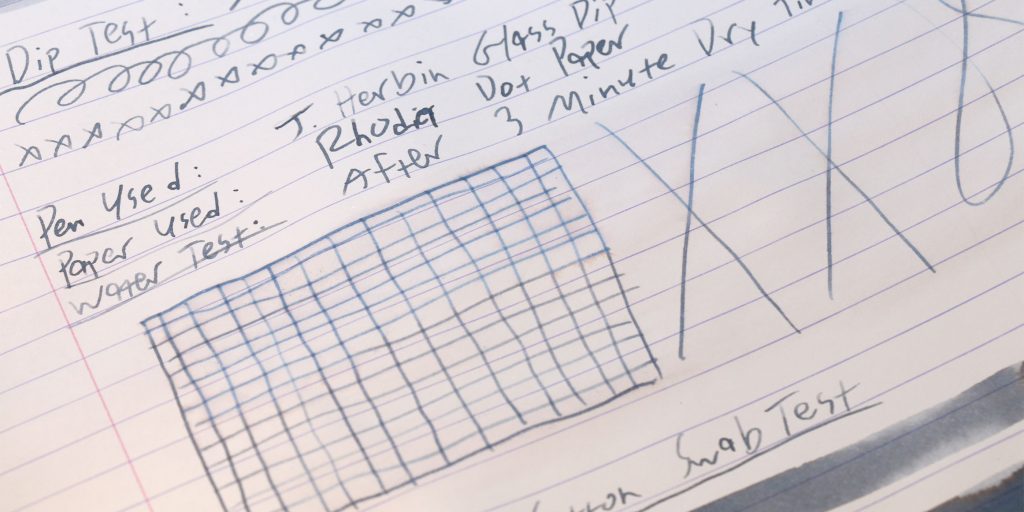 Dip Test:
xxxxxxxxxxxx
Pen Used: J. Herbin Glass Dip
Paper Used: Rhodia Dot Paper
Water Test: After 3 Minute Dry
XX8
Swab Test